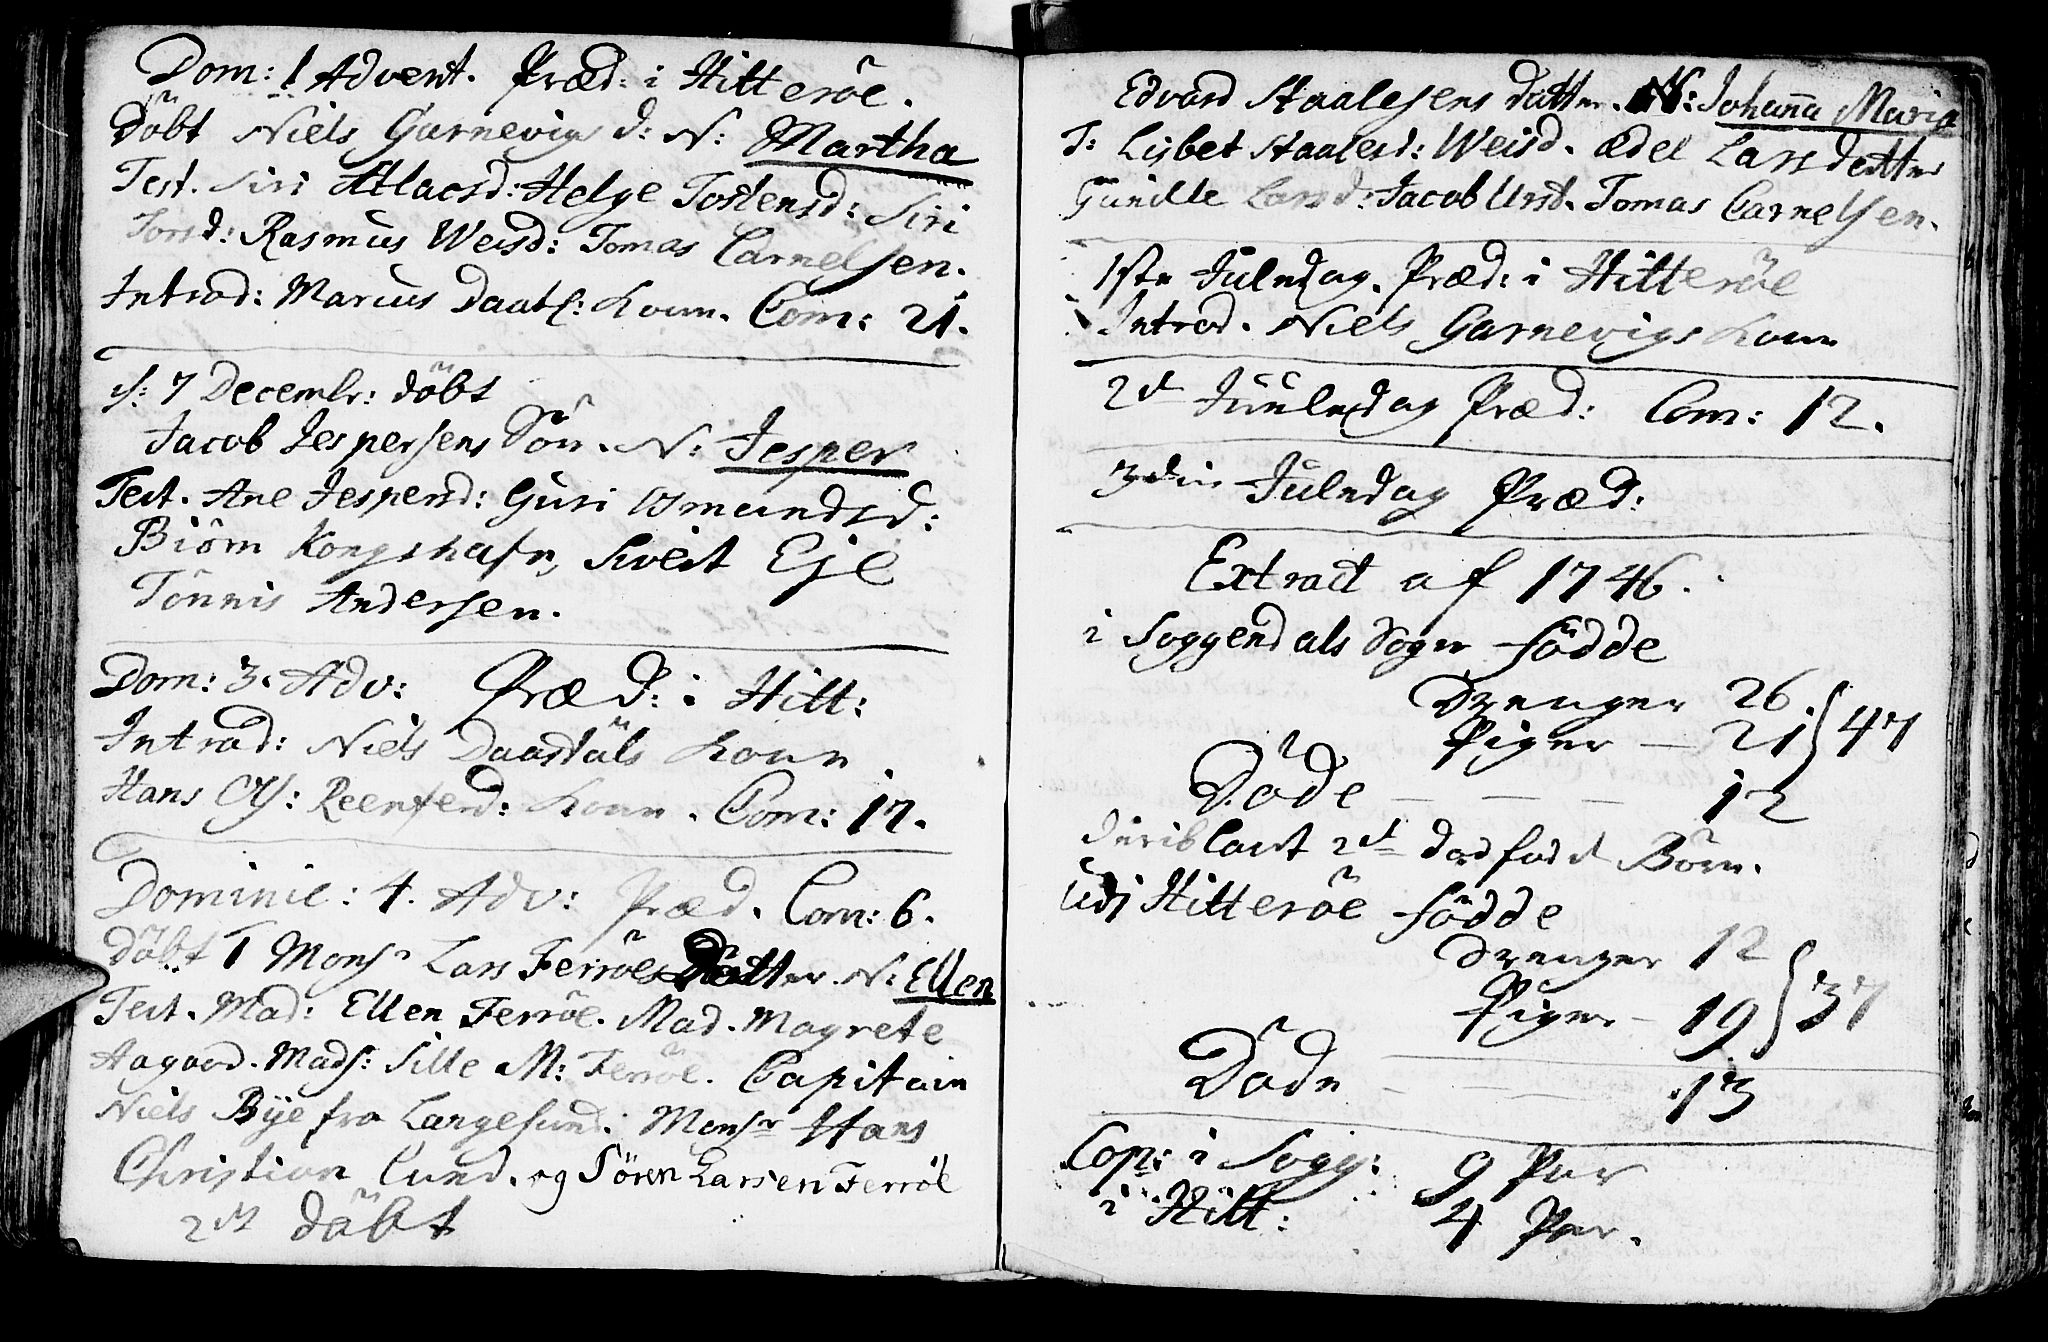 Dom: 1 Advent. Præd: i Hitterőe.
Döbt Niels Garnevigs d: N: Martha
Test. Siri Atlacsd: Helge Tostensd: Siri
Torsd: Rasmus Weisd: Tomas Carnelsen.
Introd: Marcus Daatl: Kone. Com: 21.
d: 7 Decembr: döbt
Jacob Jespersens Sön. N: Jesper
Test. Ane Jespersd: Guri Osmundsd:
Biörn Kongshafn, Siveit Eje
Tönnis Andersen.
Dom: 3. Adv: Præd: i Hitt:
Introd: Niels Daastöls Kone
Hans Kone. Com: 17.
Dominic: 4. Adv: Præd. Com: 6.
Döbt 1 Monsr Lars Ferröes Datter. N: Ellen
Test. Mad: Ellen Ferröe. Mad. Magrete
Aagaard. Mads: Sille M: Ferröe. Capitain
Niels Bye fra Langesund. Monsr Hans
Christian Lund. og Sören Larsen Ferröe
2det döbt
Edvard Staalesens Datter. N: Johanna Maria
T: Lisbet Staalesd: Weisd. Ædel Larsdatter
Gunille Larsd: Jacob Urst. Tomas Carnelsen.
1ste Juledag. Præd: i Hitteröe
Introd. Niels Garnevigs Kone
2den Juuledag Præd: Com: 12.
3die Juledag Præd:
Extract af 1746.
i Soggendals Sogn födde
Drenger 26. } 47
Piger — 21
Döde — — — 12
deriblant 2de dödfödt Börn.
Udj Hitteröe födde
Drenger 12 } 37
Piger — 19
Döde — — 13
Cop: i Sogg: 9 Par
i Hitt: 4 Par.